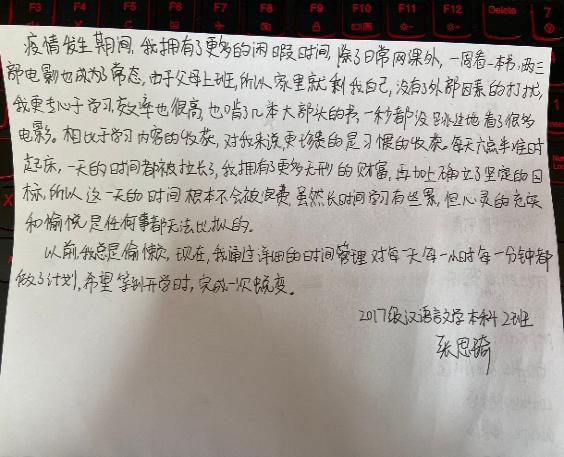 F3 F4 F5 F6 F7 F8 F9 F10 F11 F12 Delete 7
疫情发生期间,我拥有了更多的闲暇时间,除了日常网课外,一周看一本书,两三
部电影也成为了常态,由于父母上班,所以家里就剩我自己,没有了外部因素的打扰,
我更专心于学习,效率也很高,也啃了几类大部头的书,一秒都没跳过地看了很多
电影。相比于学习内容的收获,对我来说更珍贵的是习惯的收获。每天六点半准时
起床,一天的时间都被拉长了,我拥有了更多无形的财富,再加上确立了坚定的目
标,所以这一天的时间根本不会被浪费,虽然长时间学习有些累,但心灵的充实
和愉悦是任何事都无法比拟的。
以前我总是偷懒,现在,我通过详细的时间管理对每一天每一小时每一分钟都
做了计划,希望等到开学时,完成一次蜕变。
2017级汉语言文学本科2班
张思琦